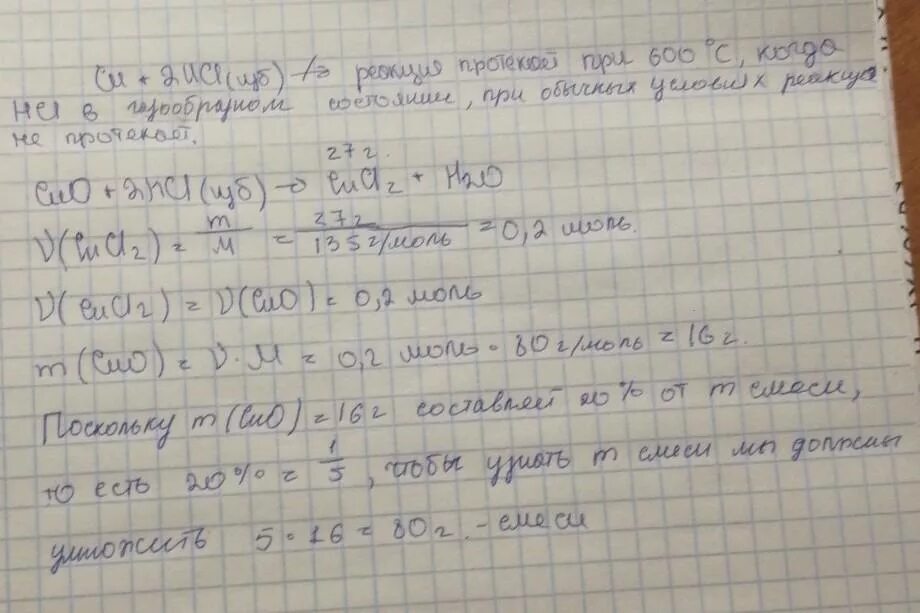 Cu + 2HCl (изб) –/→ реакция протекает при 600 °C, когда
HCl в газообразном состоянии, при обычных условиях реакция
не протекает.
27 г.
CuO + 2HCl (изб) → CuCl₂ + H₂O
ν(CuCl₂) = m/M = 27 г/135 г/моль = 0,2 моль.
ν(CuCl₂) = ν(CuO) = 0,2 моль
m(CuO) = ν · M = 0,2 моль · 80 г/моль = 16 г.
Поскольку m(CuO) = 16 г составляет 20% от m смеси,
то есть 20% = 1/5, чтобы узнать m смеси мы должны
умножить 5 · 16 = 80 г. - смеси